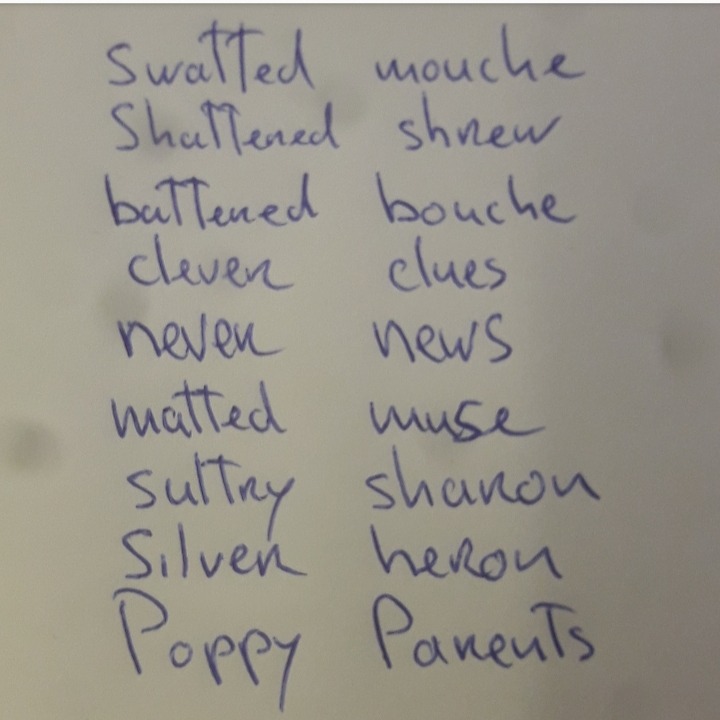 Swatted mouche
Shattered shrew
battered bouche
clever clues
never news
matted muse
sultry sharon
Silver heron
Poppy Parents